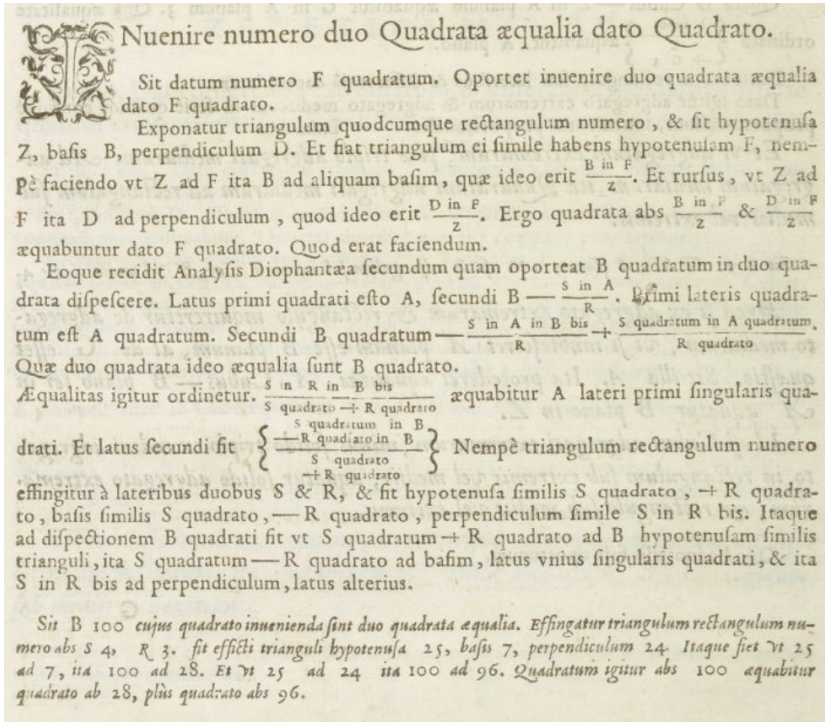 INuenire numero duo Quadrata æqualia dato Quadrato.
Sit datum numero F quadratum. Oportet inuenire duo quadrata æqualia
dato F quadrato.
Exponatur triangulum quodcumque rectangulum numero, & sit hypotenusa
Z, basis B, perpendiculum D. Et fiat triangulum ei simile habens hypotenusam F, nem-
pè faciendo vt Z ad F ita B ad aliquam basim, quæ ideo erit B in F / Z. Et rursus, vt Z ad
F ita D ad perpendiculum, quod ideo erit D in F / Z. Ergo quadrata abs B in F / Z & D in F / Z
æquabuntur dato F quadrato. Quod erat faciendum.
Eoque recidit Analysis Diophantæa secundum quam oporteat B quadratum in duo qua-
drata dispescere. Latus primi quadrati esto A, secundi B — S in A / R. Primi lateris quadra-
tum est A quadratum. Secundi B quadratum — S in A in B bis / R + S quadratum in A quadratum / R quadrato.
Quæ duo quadrata ideo æqualia sunt B quadrato.
Æqualitas igitur ordinetur. S in R in B bis / S quadrato + R quadrato æquabitur A lateri primi singularis qua-
drati. Et latus secundi fit { S quadratum in B — R quadrato in B / S quadrato + R quadrato } Nempè triangulum rectangulum numero
effingitur à lateribus duobus S & R, & fit hypotenusa similis S quadrato, + R quadra-
to, basis similis S quadrato, — R quadrato, perpendiculum simile S in R bis. Itaque
ad dispectionem B quadrati fit vt S quadratum + R quadrato ad B hypotenusam similis
trianguli, ita S quadratum — R quadrato ad basim, latus vnius singularis quadrati, & ita
S in R bis ad perpendiculum, latus alterius.
Sit B 100 cujus quadrato inuenienda sint duo quadrata æqualia. Effingatur triangulum rectangulum nu-
mero abs S 4, R 3. fit efficti trianguli hypotenusa 25, basis 7, perpendiculum 24. Itaque fiet vt 25
ad 7, ita 100 ad 28. Et vt 25 ad 24 ita 100 ad 96. Quadratum igitur abs 100 æquabitur
quadrato ab 28, plùs quadrato abs 96.